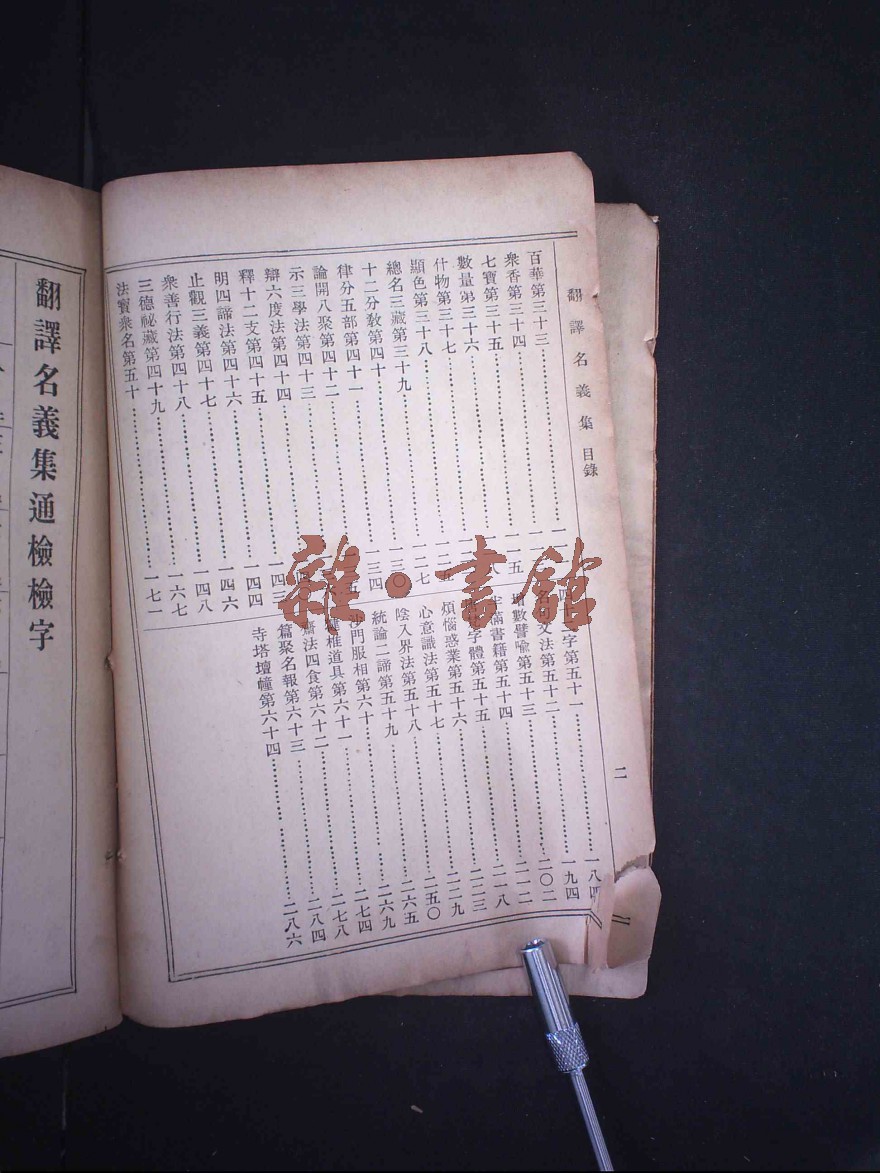 翻譯名義集 目錄
二
百華第三十三
衆香第三十四
七寶第三十五
數量第三十六
什物第三十七
顯色第三十八
總名三藏第三十九……一二七
十二分教第四十……一三〇
律分五部第四十一……一三四
論開八聚第四十二
示三學法第四十三
辯六度法第四十四
釋十二支第四十五……一四三
明四諦法第四十六……一四四
止觀三義第四十七……一四六
衆善行法第四十八……一四八
三德祕藏第四十九……一六七
法寶衆名第五十……一七一
四十二字第五十一……一八四
名句文法第五十二……一九四
增數譬喩第五十三……二〇二
半滿書籍第五十四……二一二
字體第五十五……二一八
煩惱惑業第五十六……二二三
心意識法第五十七……二二九
陰入界法第五十八……二五〇
統論二諦第五十九……二六五
沙門服相第六十……二六九
犍椎道具第六十一……二七四
齋法四食第六十二……二七八
篇聚名報第六十三……二八四
寺塔壇幢第六十四……二八六
翻譯名義集通檢檢字
雜·書館